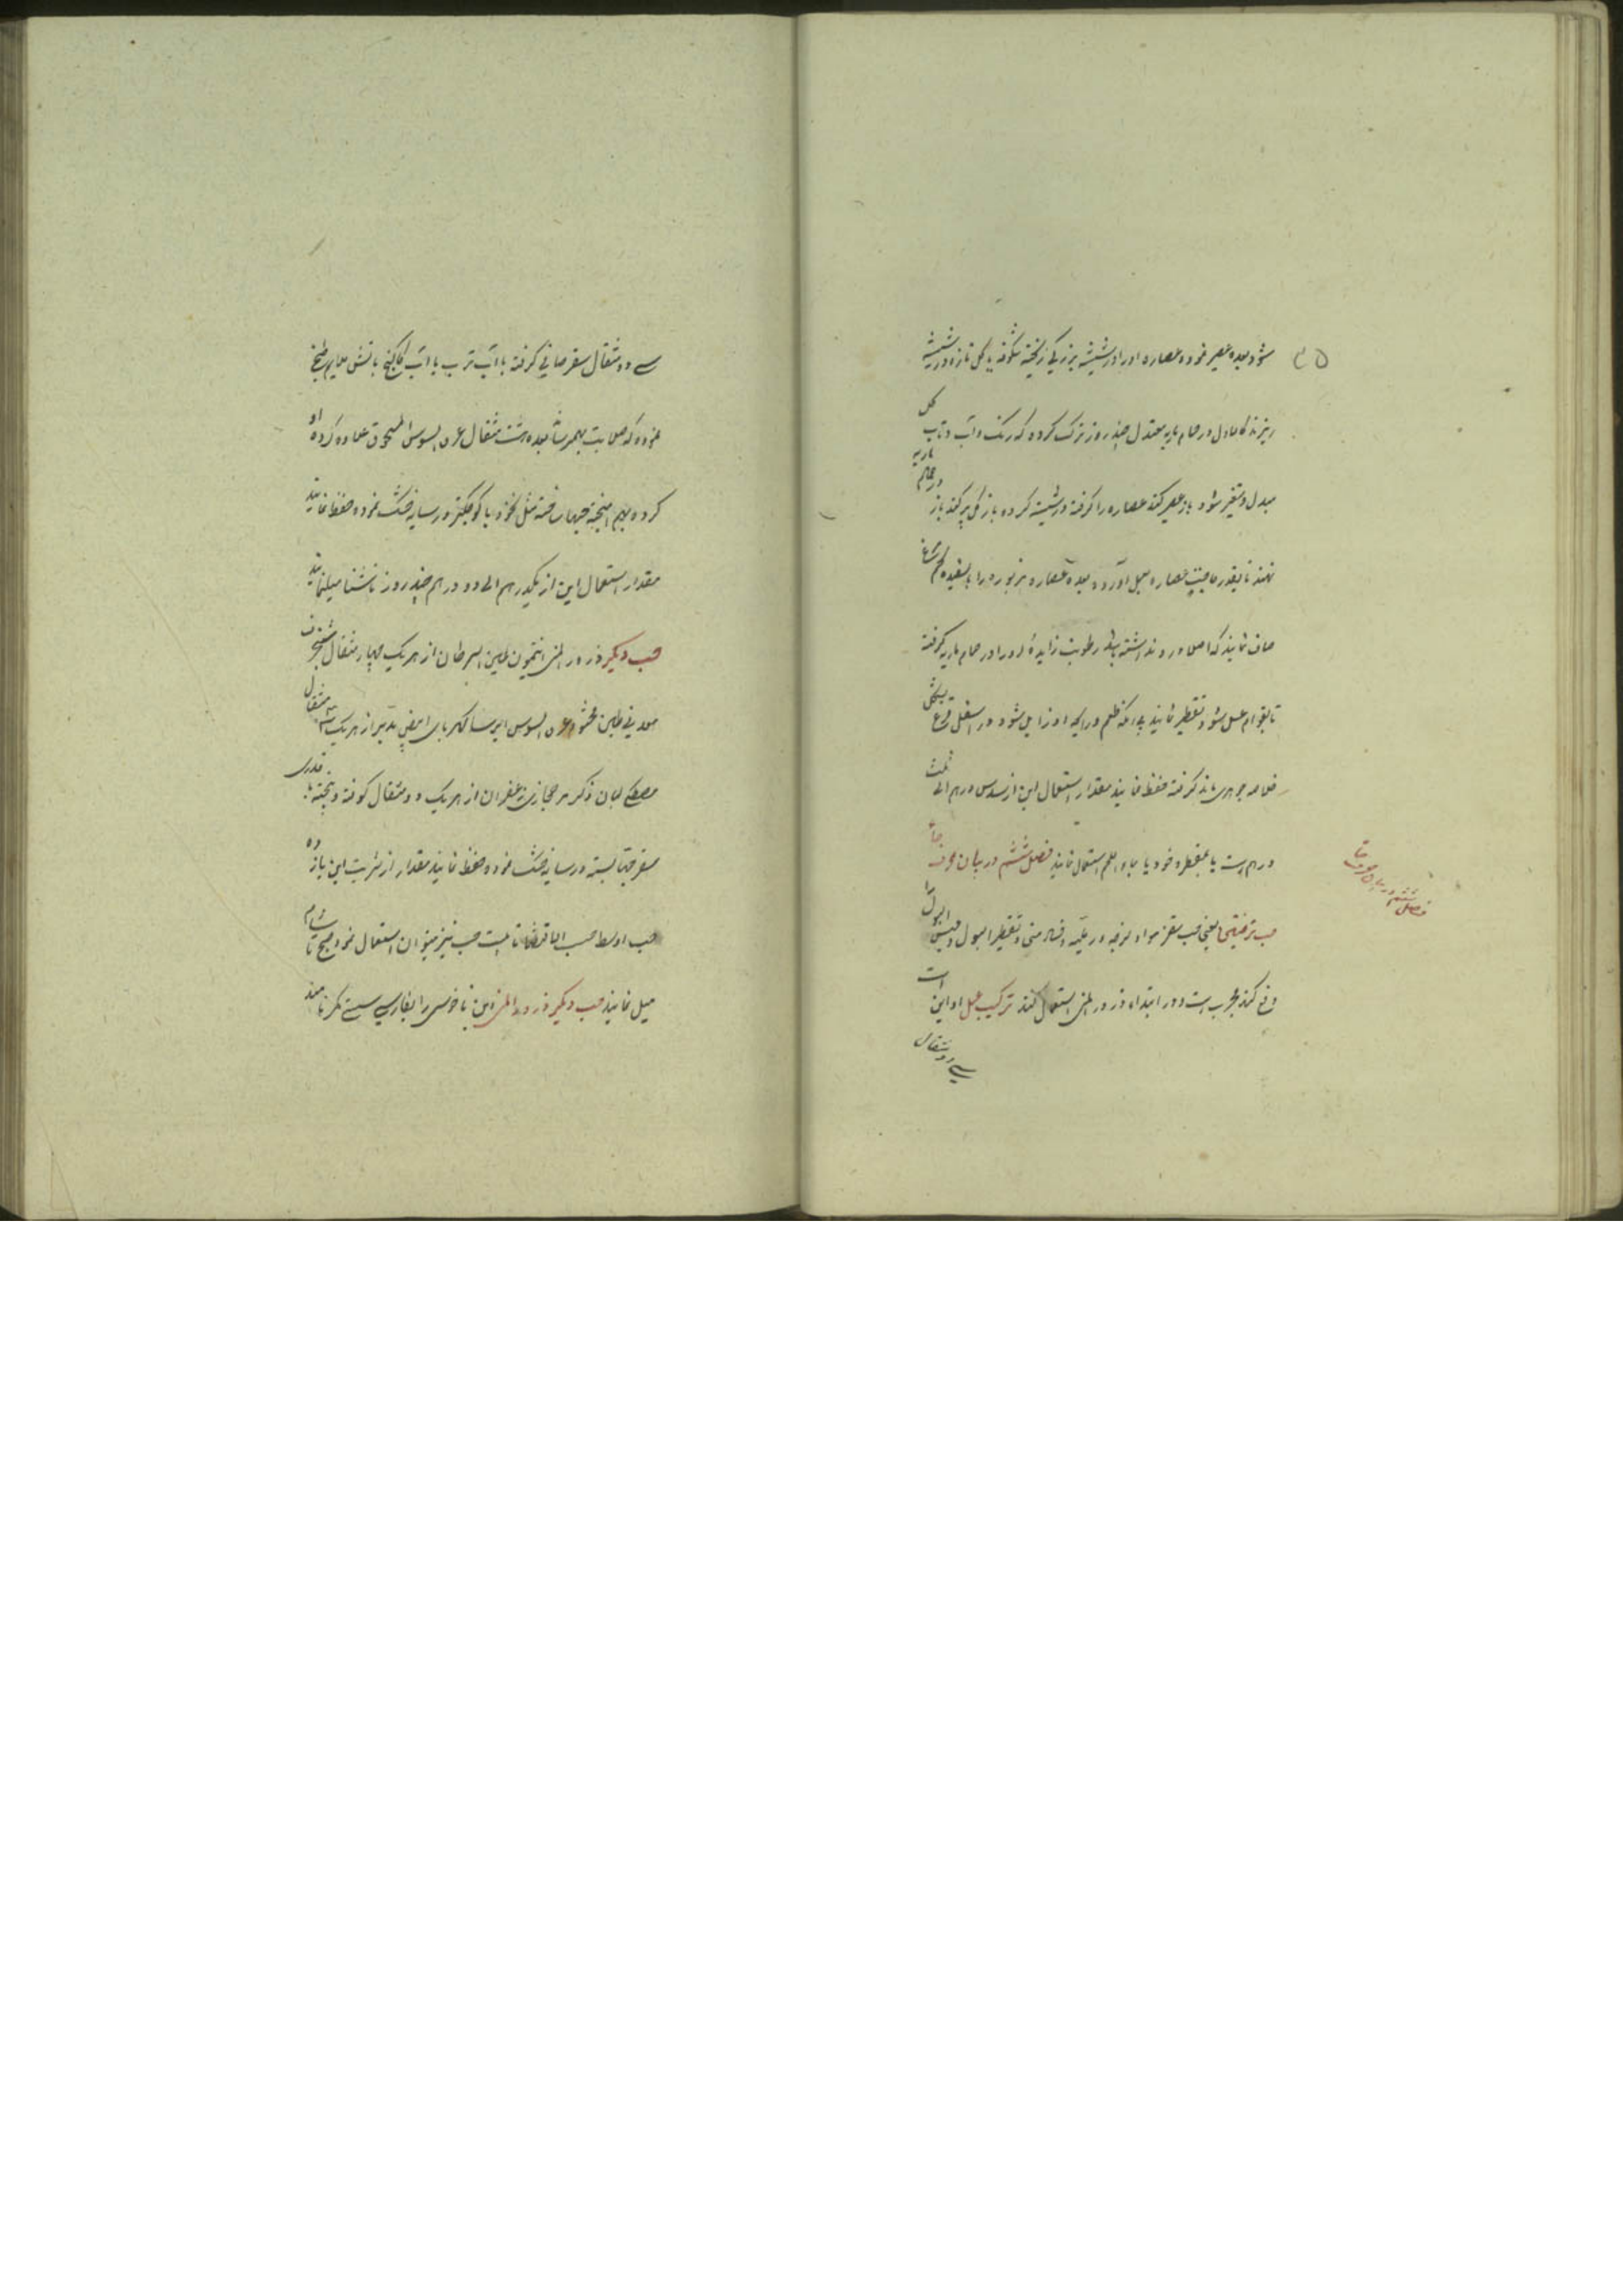 شود بعده عصیر نموده عصاره او را در شیشه بزرگی ریخته شکوفه یا گل تازه او در شیشه
ریزند کالاول در حمام ماریه معتدل چند روز ترک کرده که رنگ و آب و تاب گل
مبدل و متغیر شود باز عصیر کند عصاره را گرفته در شیشه کرده باز گل پر کند باز در حمام ماریه
نهند تا بقدر حاجت عصاره بعمل آورده بعده عصاره مزبوره را به سفیده تخم مرغ
صاف نمایند که اصلا درد نداشته باشد رطوبت زایده او را در حمام ماریه گرفته
تا بقوام عسل شود تقطیر نمایند چه آنکه طعم و رایحه او زایل شود در اسفل قرع بشکل
خلاصه جوهری ماند گرفته حفظ نمایند مقدار استعمال این از سدس درهم الی ثلث
درهم است یا بمقطره خود یا بماء اللحم استعمال نمایند فصل ششم در بیان معروفات
حب ترفیقی یعنی حب سقز مواد لزجه در کلیه و مثانه منی و تقطیر البول و حبس البول را
دفع کند مجرب است و در ابتداء در درالمنی استعمال کنند ترکیب عمل او این است
سی دو مثقال
۳۵
فصل ششم در بیان معروفات
سی دو مثقال سقز صافی گرفته با آب ترب یا آب کاکنج باتش ملایم طبخ
نموده که صلابت بهمرساند بعده هشت مثقال عرق السوس المسحوق علاوه کرده او
کرده بهم آمیخته حبها ساخته مثل نخود یا کوچکتر در سایه خشک نموده حفظ نمایند
مقدار استعمال این از یکدرهم الی دو درهم چند روز ناشتا میل نمایند
حب دیگر در درالمنی انتیمون طین السرطان از هر یک چهار مثقال شنجرف
معدنی طین مختوم عرق السوس ایرسا کهربای ابیض تدبیر از هر یک ۳ مثقال
مصطکی لبان ذکر مر حجازی زعفران از هر یک دو مثقال کوفته و بیخته با قدری
سقز حب بسته در سایه خشک نموده حفظ نمایند مقدار از شربت این یازده
حب اوسط حسب الاقتضا تا بیست حب نیز میتوان استعمال نمود صبح تا شام
میل نمایند حب دیگر در درالمنی این ناخوشی را بفارسی سستی کمر نامند